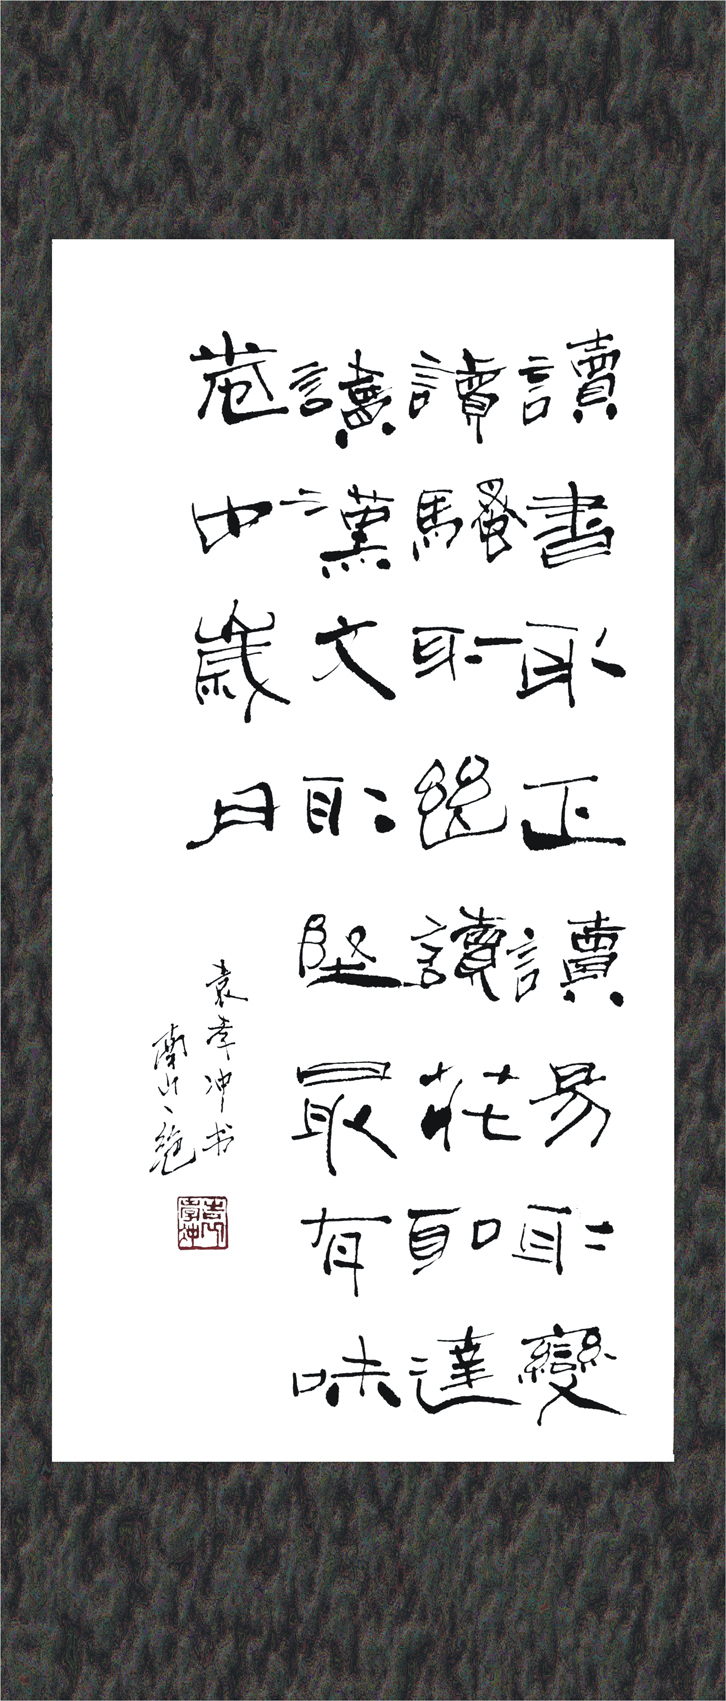 讀書取正讀易取變
讀騷取幽讀莊取達
讀漢文取堅最有味
卷中歲月
袁孝冲书
南山、绝